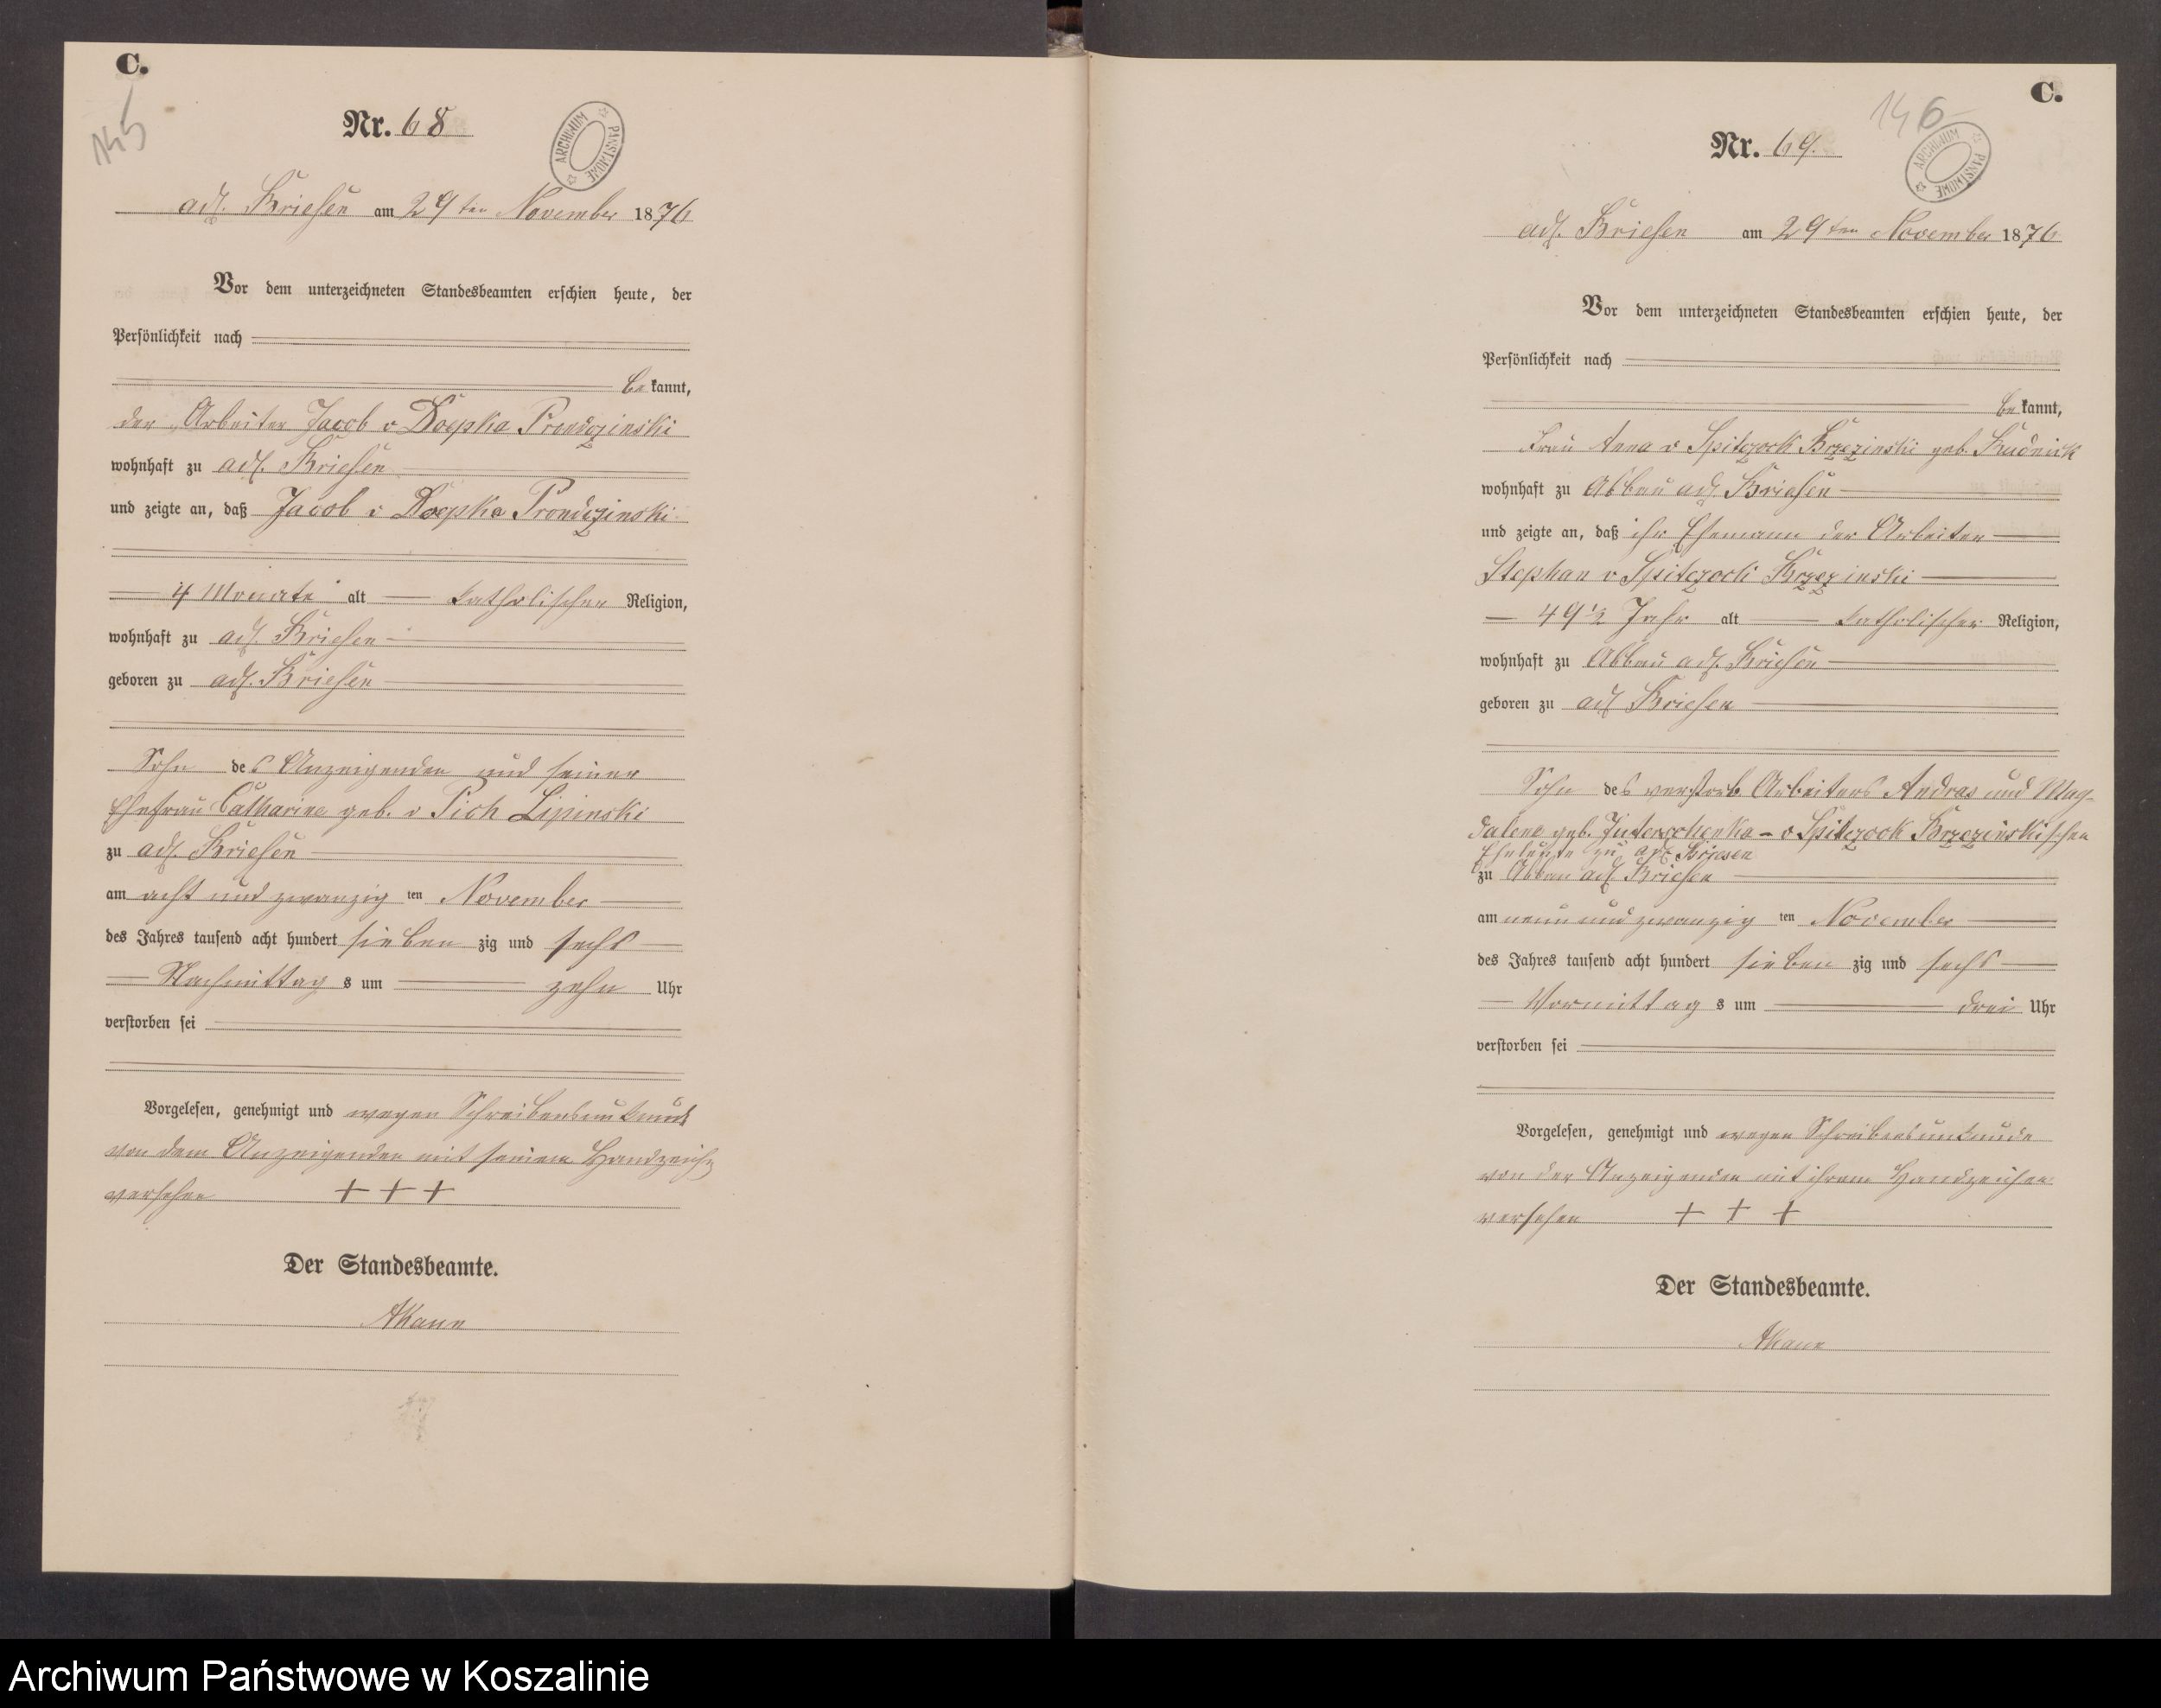 C.
145
Nr. 68
ARCHIWUM PAŃSTWOWE
adl. Briesen am 29ten November 1876
Vor dem unterzeichneten Standesbeamten erschien heute, der
Persönlichkeit nach
be kannt,
der Arbeiter Jacob v Doepka Prondzinski
wohnhaft zu adl. Briesen
und zeigte an, daß Jacob v Doepka Prondzinski
4 Monate alt katholischer Religion,
wohnhaft zu adl. Briesen
geboren zu adl. Briesen
Sohn des Anzeigenden und seiner
Ehefrau Catharine geb. v Pich Lipinski
zu adl. Briesen
am acht und zwanzig ten November
des Jahres tausend acht hundert sieben zig und sechs
Nachmittag s um zehn Uhr
verstorben sei
Vorgelesen, genehmigt und wegen Schreibensunkunde
von dem Anzeigenden mit seinem Handzeichn
versehen + + +
Der Standesbeamte.
C.
146
Nr. 69.
ARCHIWUM PAŃSTWOWE
adl. Briesen am 29ten November 1876
Vor dem unterzeichneten Standesbeamten erschien heute, der
Persönlichkeit nach
be kannt,
Frau Anna v Spiczock Brzezinski geb. Rudnick
wohnhaft zu Abbau adl. Briesen
und zeigte an, daß ihr Ehemann der Arbeiter
Stephan v Spiczock Brzezinski
49 1/2 Jahr alt katholischer Religion,
wohnhaft zu Abbau adl. Briesen
geboren zu adl Briesen
Sohn des verstorb Arbeiters Andras und Mag-
dalena geb. - v Spiczock Brzezinskischen
Eheleute zu adl Briesen
zu Abbau adl. Briesen
am neun und zwanzig ten November
des Jahres tausend acht hundert sieben zig und sechs
Vormittag s um drei Uhr
verstorben sei
Vorgelesen, genehmigt und wegen Schreibensunkunde
von der Anzeigenden mit ihrem Handzeichen
versehen + + +
Der Standesbeamte.
Archiwum Państwowe w Koszalinie